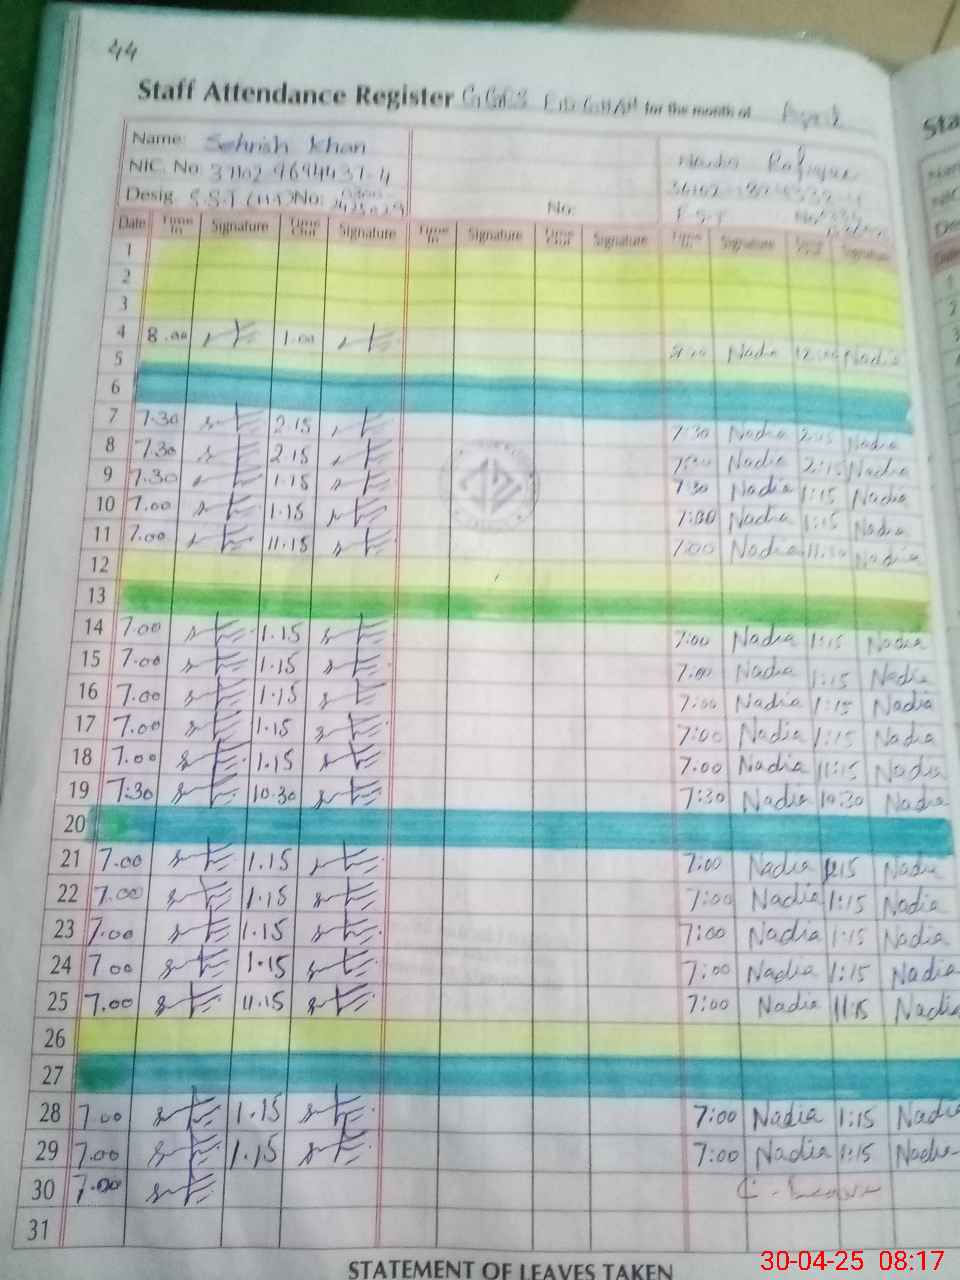 44
Staff Attendance Register for the month of April
Name: Sehrish Khan
NIC. No.
Desig. S.S.T No:
No:
Nadia Rafique
Date Time In Signature Time Out Signature Time In Signature Time Out Signature Time In Signature Signature
1
2
3
4 8.00 1.00 Nadia Nadia
5
6
7 7.30 2.15 7:30 Nadia 2:15 Nadia
8 7.30 2.15 Nadia 2:15 Nadia
9 7.30 1.15 7:30 Nadia 1:15 Nadia
10 7.00 1.15 Nadia 1:15 Nadia
11 7.00 11.15 7:00 Nadia Nadia
12
13
14 7.00 1.15 7:00 Nadia 1:15 Nadia
15 7.00 1.15 7:00 Nadia 1:15 Nadia
16 7.00 1.15 7:00 Nadia 1:15 Nadia
17 7.00 1.15 7:00 Nadia 1:15 Nadia
18 7.00 1.15 7:00 Nadia 11:15 Nadia
19 7:30 10.30 7:30 Nadia 10:30 Nadia
20
21 7.00 1.15 7:00 Nadia 1:15 Nadia
22 7.00 1.15 7:00 Nadia 1:15 Nadia
23 7.00 1.15 7:00 Nadia 1:15 Nadia
24 7.00 1.15 7:00 Nadia 1:15 Nadia
25 7.00 11.15 7:00 Nadia 11:15 Nadia
26
27
28 7.00 1.15 7:00 Nadia 1:15 Nadia
29 7.00 1.15 7:00 Nadia 1:15 Nadia
30 7.00 C-Leave
31
STATEMENT OF LEAVES TAKEN
30-04-25 08:17